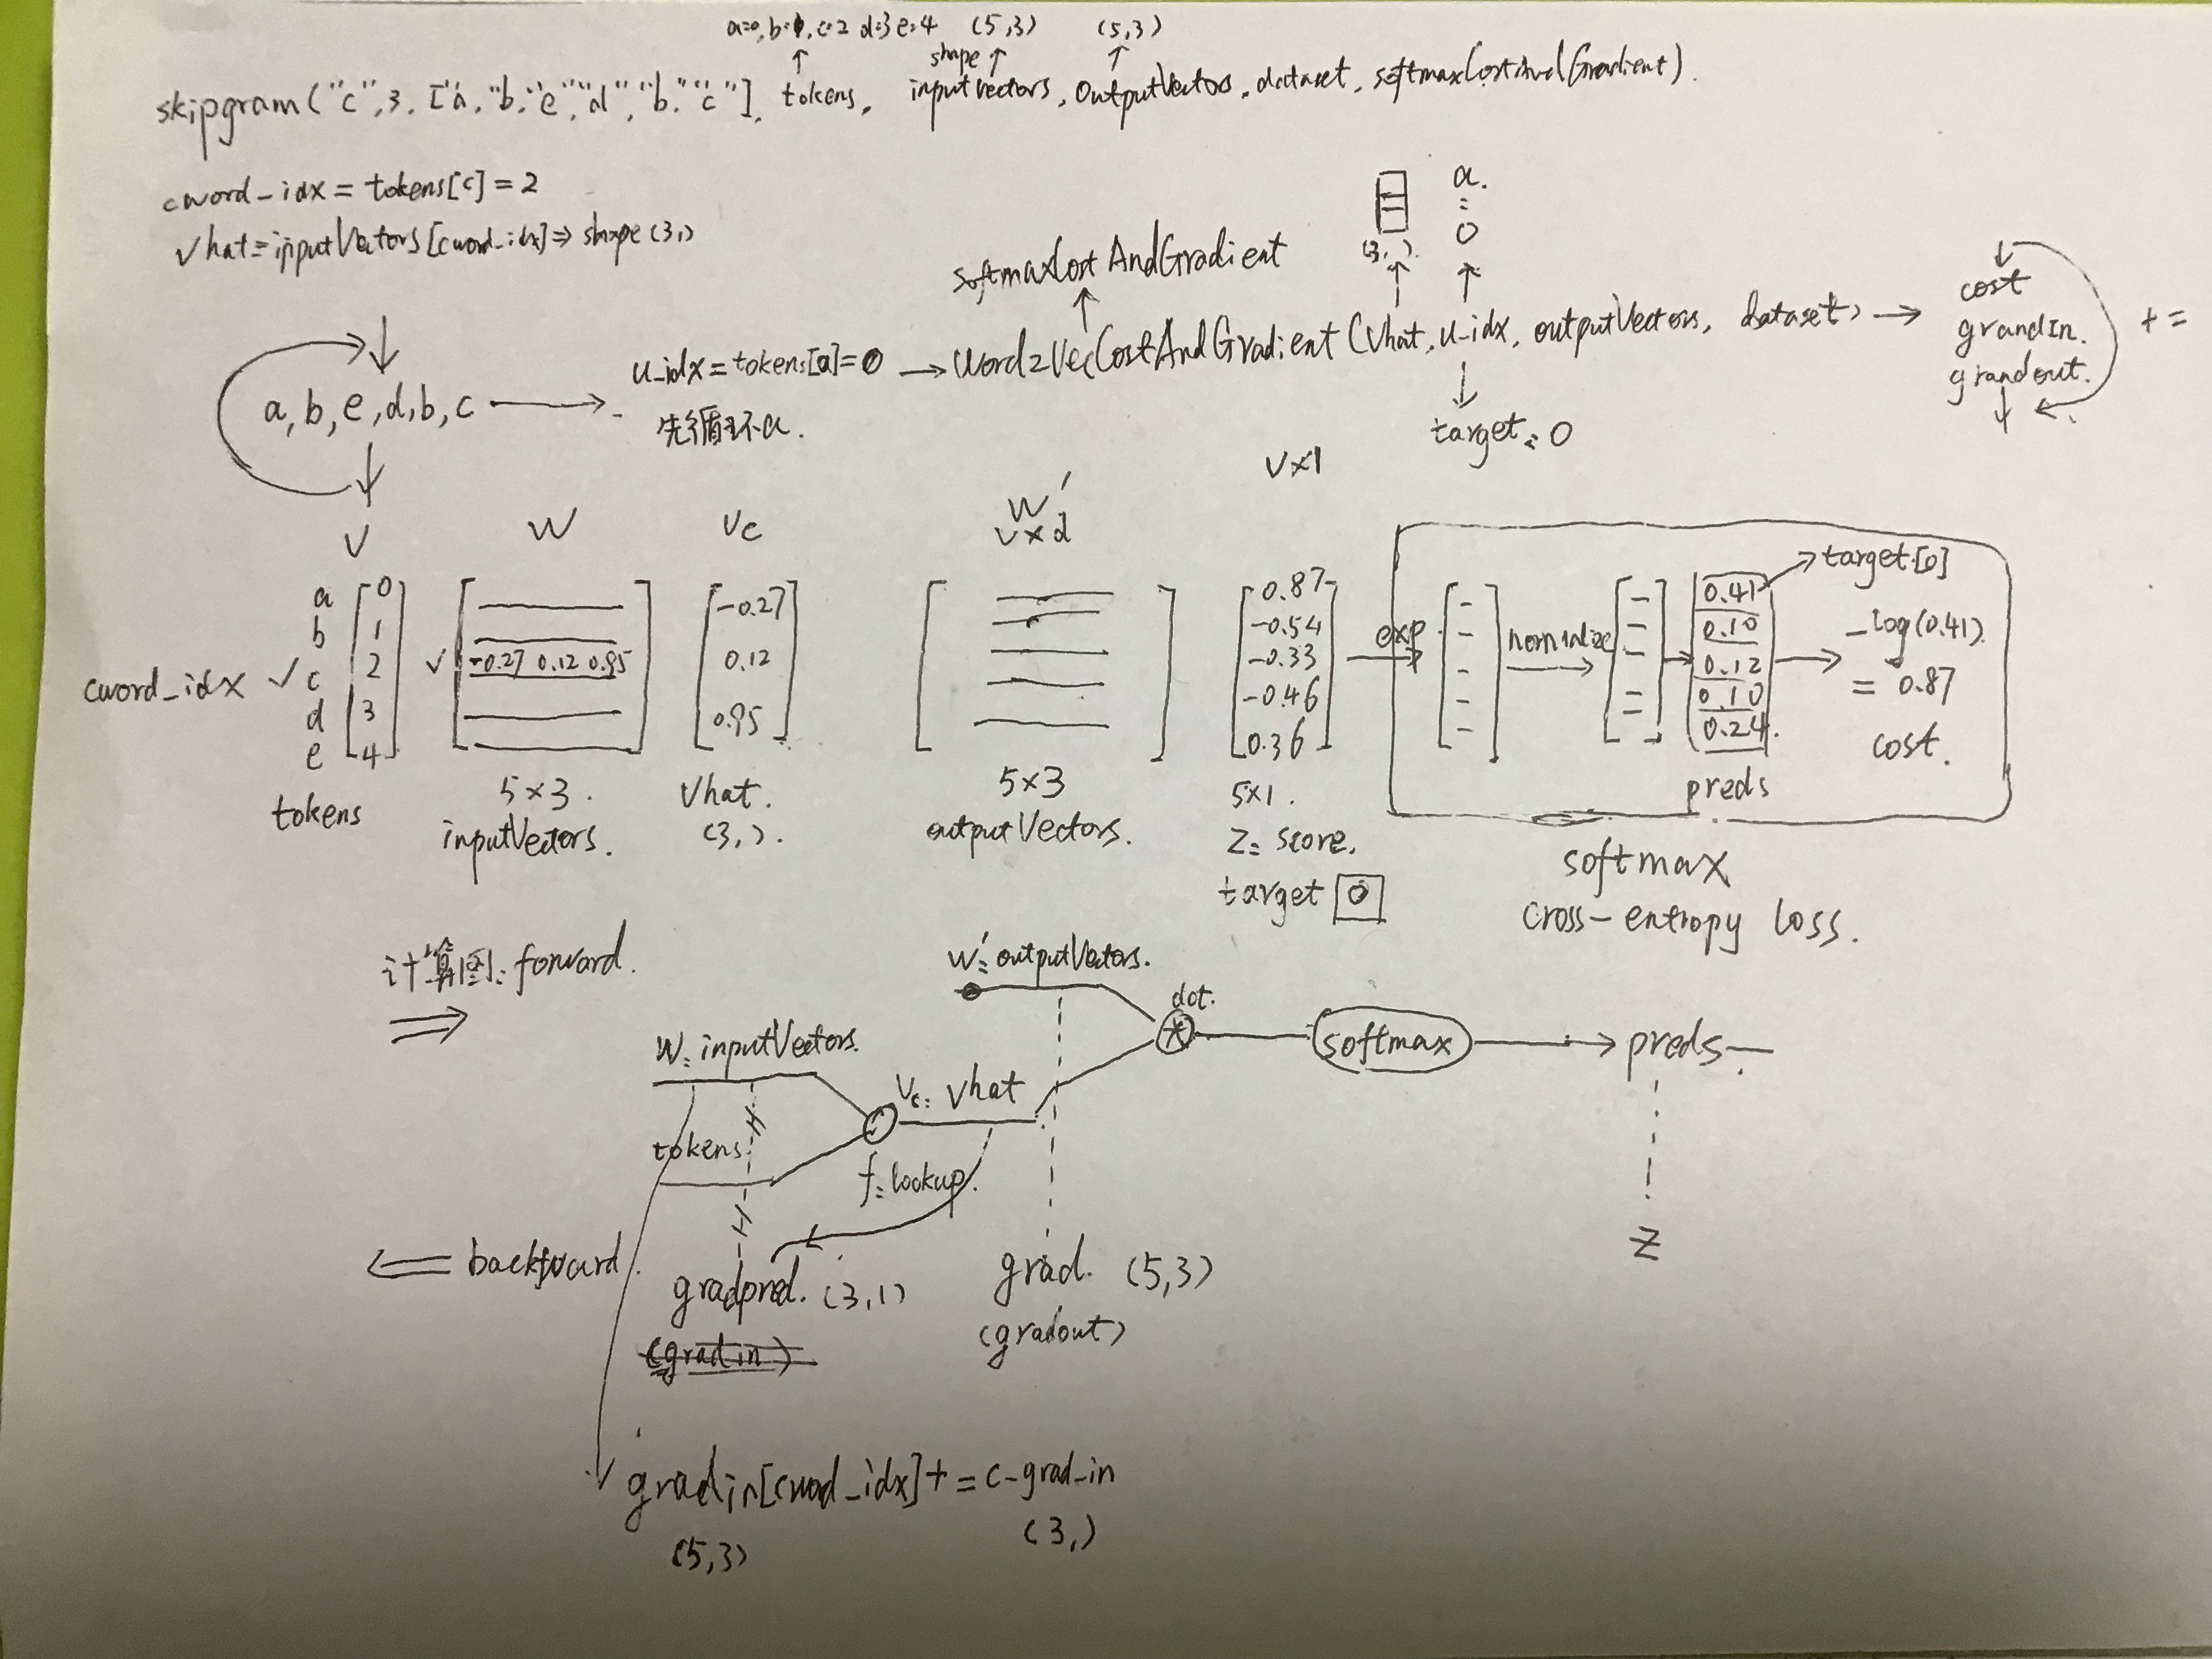 a=0, b=1, c=2 d=3 e=4 (5,3) (5,3)
shape
skipgram ("c", 3, ["a, "b," "e", "d", "b," "c"], tokens, inputVectors, OutputVectors, dataset, softmaxCostAndGradient).
cword_idx = tokens[c] = 2
Vhat = inputVectors[cword_idx] => shape (3,)
a.
=
0
(3, ).
softmaxCostAndGradient
u_idx = tokens[a] = 0 → word2VecCostAndGradient (Vhat, u_idx, outputVectors, dataset) →
cost
grandIn.
grandout.
+ =
a, b, e, d, b, c
先循环a.
target = 0
V
W
Vc
W'
V×d
V×1
a 0
b 1
cword_idx ✓ c 2
d 3
e 4
tokens
✓ -0.27 0.12 0.95
5×3.
inputVectors.
-0.27
0.12
0.95
Vhat.
(3, ).
5×3
outputVectors.
0.87
-0.54
-0.33
-0.46
0.36
5×1.
Z = score.
target 0
exp.
normalize
0.41
0.10
0.12
0.10
0.24
preds
target[0]
-log(0.41)
= 0.87
cost.
softmax
cross-entropy loss.
计算图: forward.
⇒
W': outputVectors.
dot.
*
softmax → preds
W: inputVectors.
Vc: Vhat
tokens
f: lookup.
Z
⇐ backward.
gradpred. (3,1)
(gradin)
grad. (5,3)
(gradout)
gradin[cword_idx] += c-grad_in
(5,3) (3,)